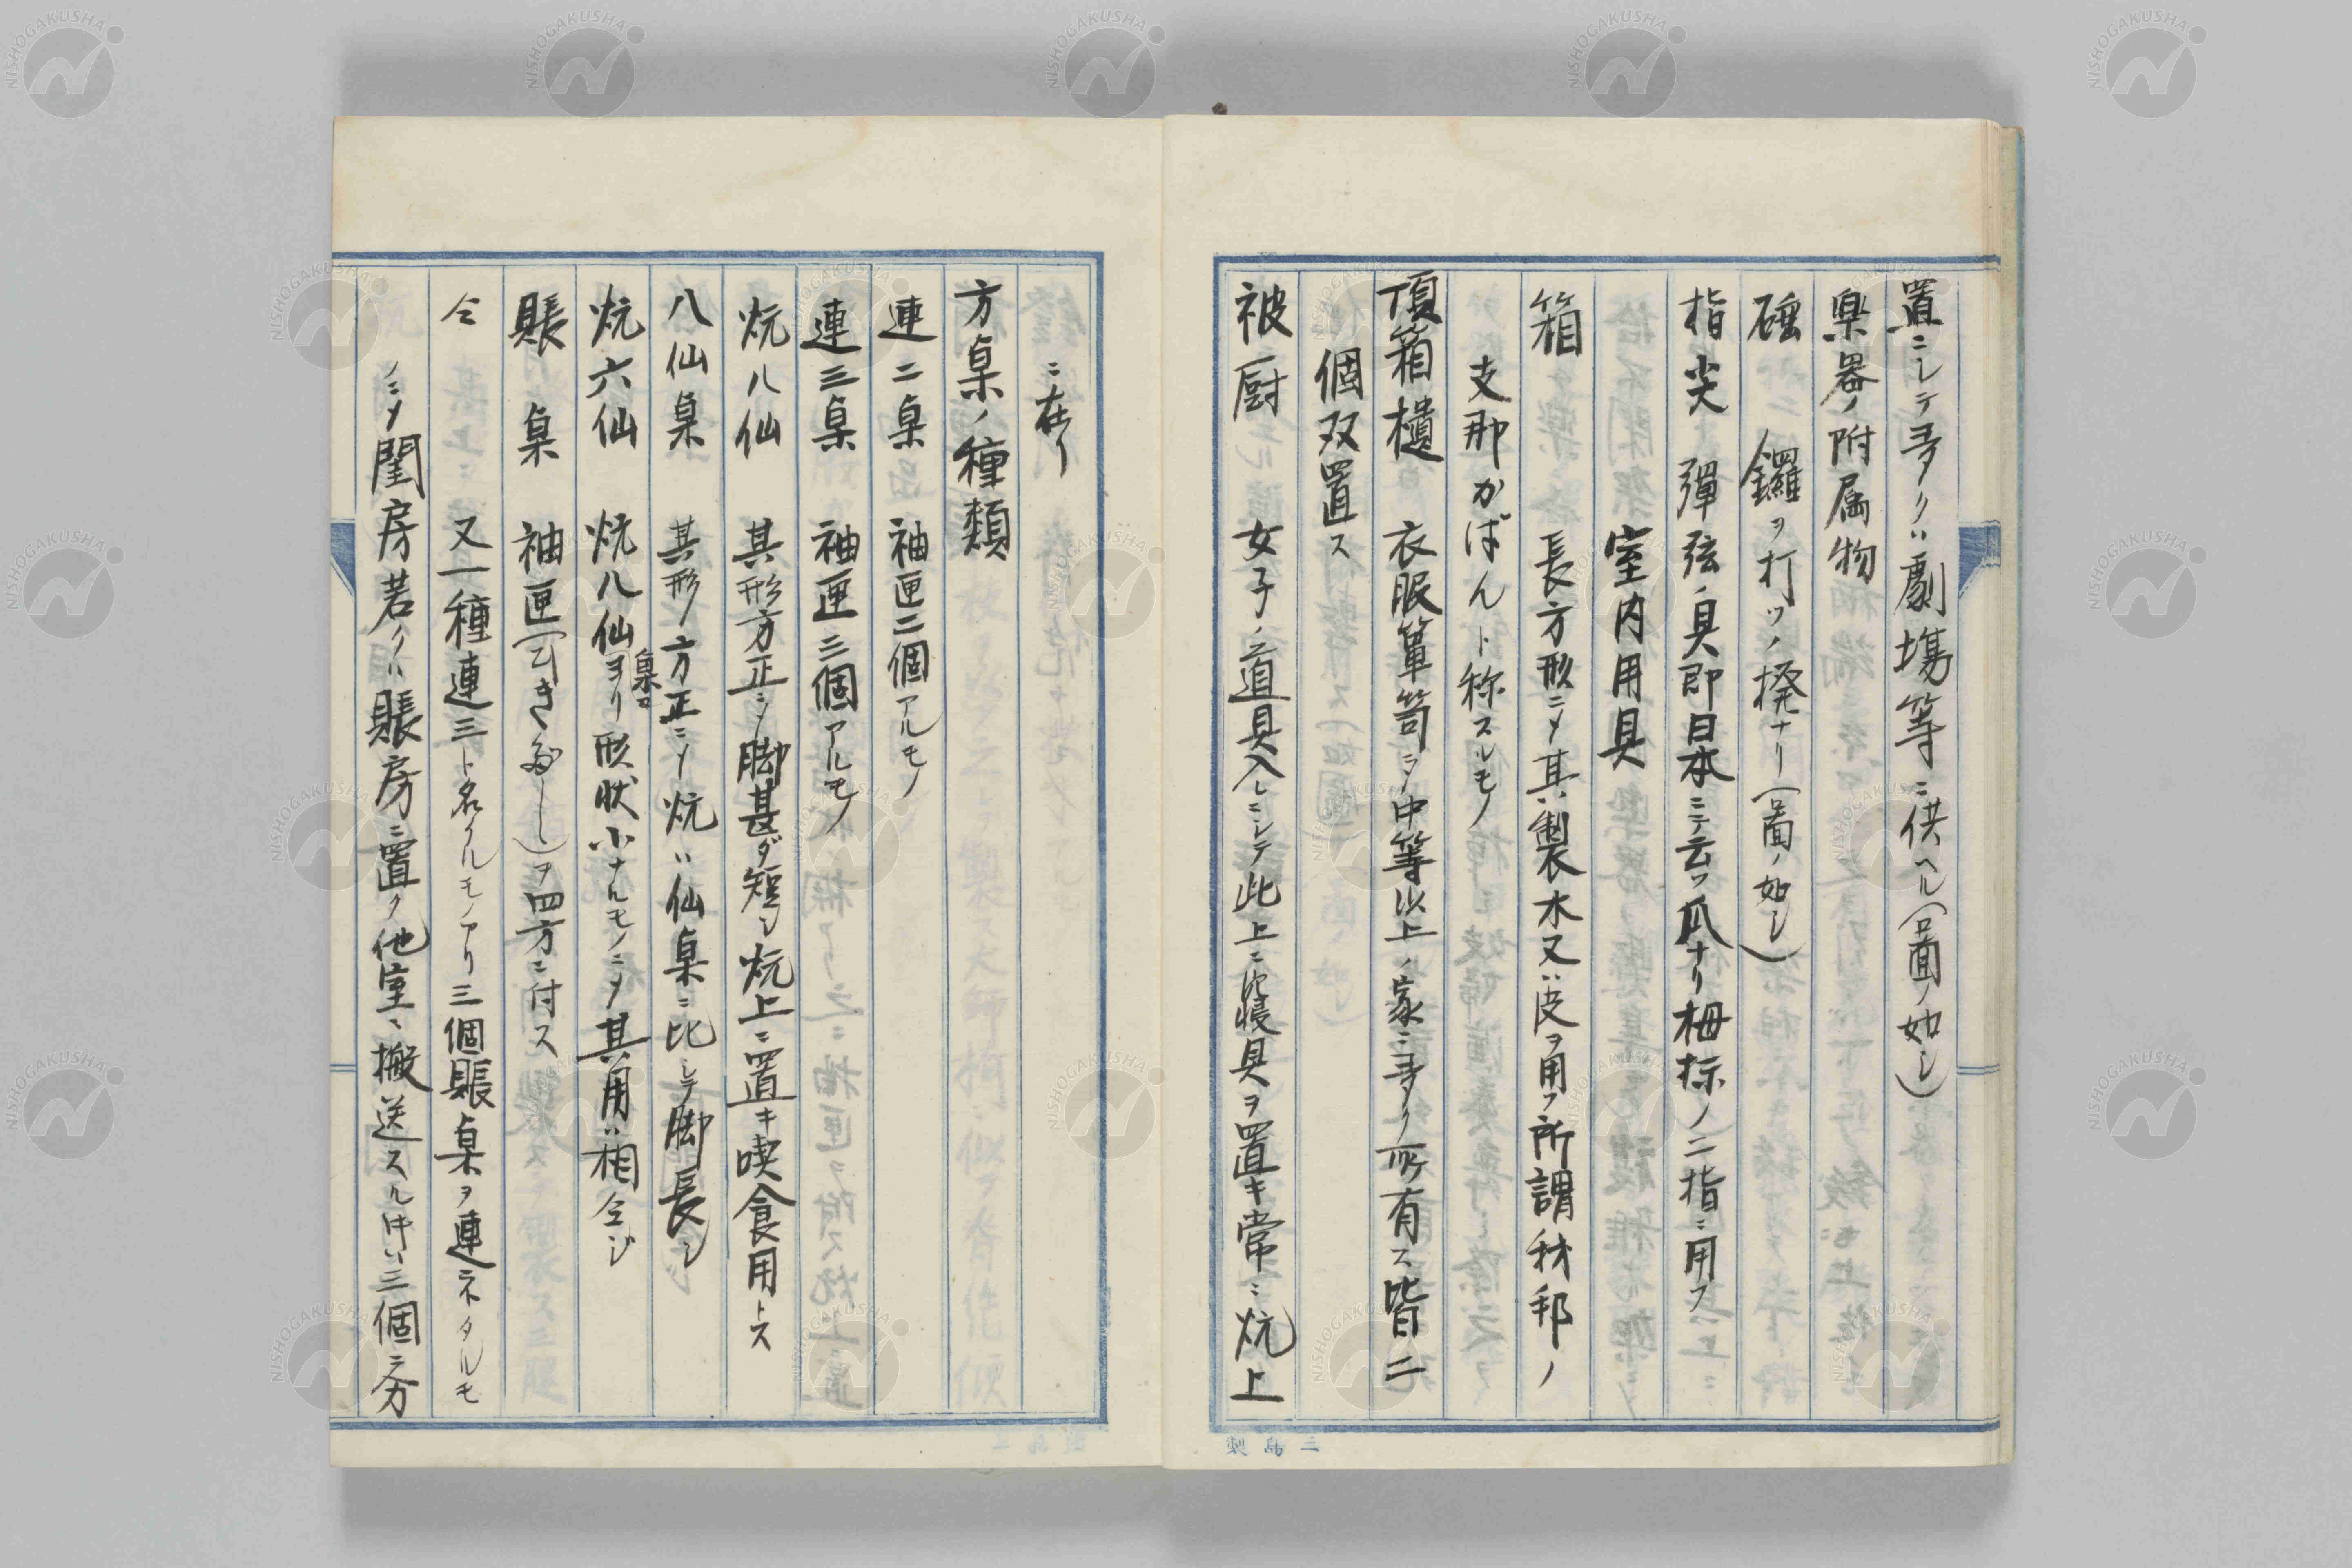 置ニシテ多クハ劇場等ニ供ヘル(啚面ノ如シ)
楽器ノ附属物
硾 鑼ヲ打ツノ撥ナリ(啚面ノ如シ)
指尖 弾弦ノ具即日本ニテ云フ爪ナリ栂掠ノ二指ニ用フ
室内用具
箱 長方形ニメ其製木又ハ皮ヲ用フ所謂我邦ノ
支那かばんト称スルモノ
頂箱櫃 衣服箪笥ニメ中等以上ノ家ニ多ク所有ス皆二
個双置ス
被厨 女子ノ道具入レニシテ此上ニ寝具ヲ置キ常ニ炕上
ニ在リ
方桌ノ種類
連二桌 袖匣二個アルモノ
連三桌 袖匣三個アルモノ
炕八仙 其形方正ニメ脚甚ダ短シ炕上ニ置キ喫食用トス
八仙桌 其形方正ニメ炕八仙桌ニ比シテ脚長シ
炕六仙 炕八仙桌ヨリ形状小ナルモノニメ其用ハ相仝ジ
賬桌 袖匣(ひきだし)ヲ四方ニ付ス
仝 又一種連三ト名クルモノアリ三個賬桌ヲ連ネタルモ
ノニメ閨房若クハ賬房ニ置ク他室ヘ搬送スル時ハ三個ニ分
三島製